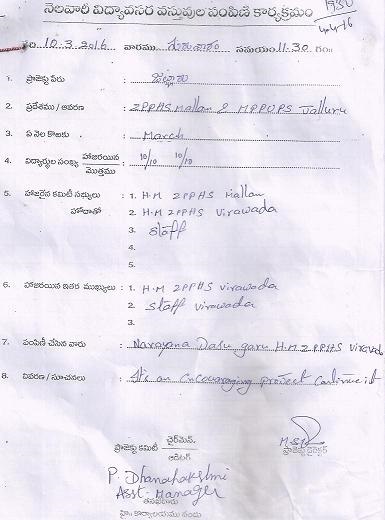 నెలవారీ విద్యావసర వస్తువుల పంపిణీ కార్యక్రమం
4-4-16
తేది 10.3.2016 వారము గురువారం సమయం 11.30 గం॥
1. ప్రాజెక్టు పేరు :
2. ప్రదేశము / ఆవరణ : ZPPHS Mallam & MPPUPS Jalluru
3. ఏ నెల కొఱకు : March
4. విద్యార్థుల సంఖ్య హాజరయిన / మొత్తము : 10/10 10/10
5. హాజరైన కమిటీ సభ్యులు : 1. H.M ZPPHS Mallam
హోదాతో 2. H.M ZPPHS Virawada
3. Staff
4.
5.
6. హాజరయిన ఇతర ముఖ్యులు : 1. H.M ZPPHS Virawada
2. Staff Virawada
3.
7. పంపిణీ చేసిన వారు : Narayana Dasu garu H.M ZPPHS Virawada
8. వివరణ / సూచనలు : It's an encouraging project continue it
ప్రాజెక్టు కమిటీ ఛైర్మెన్.
ఆడిటర్
ప్రాజెక్టు డైరెక్టర్
P. Dhanalakshmi
Asst. Manager
హై॥ కార్యాలయము నందు